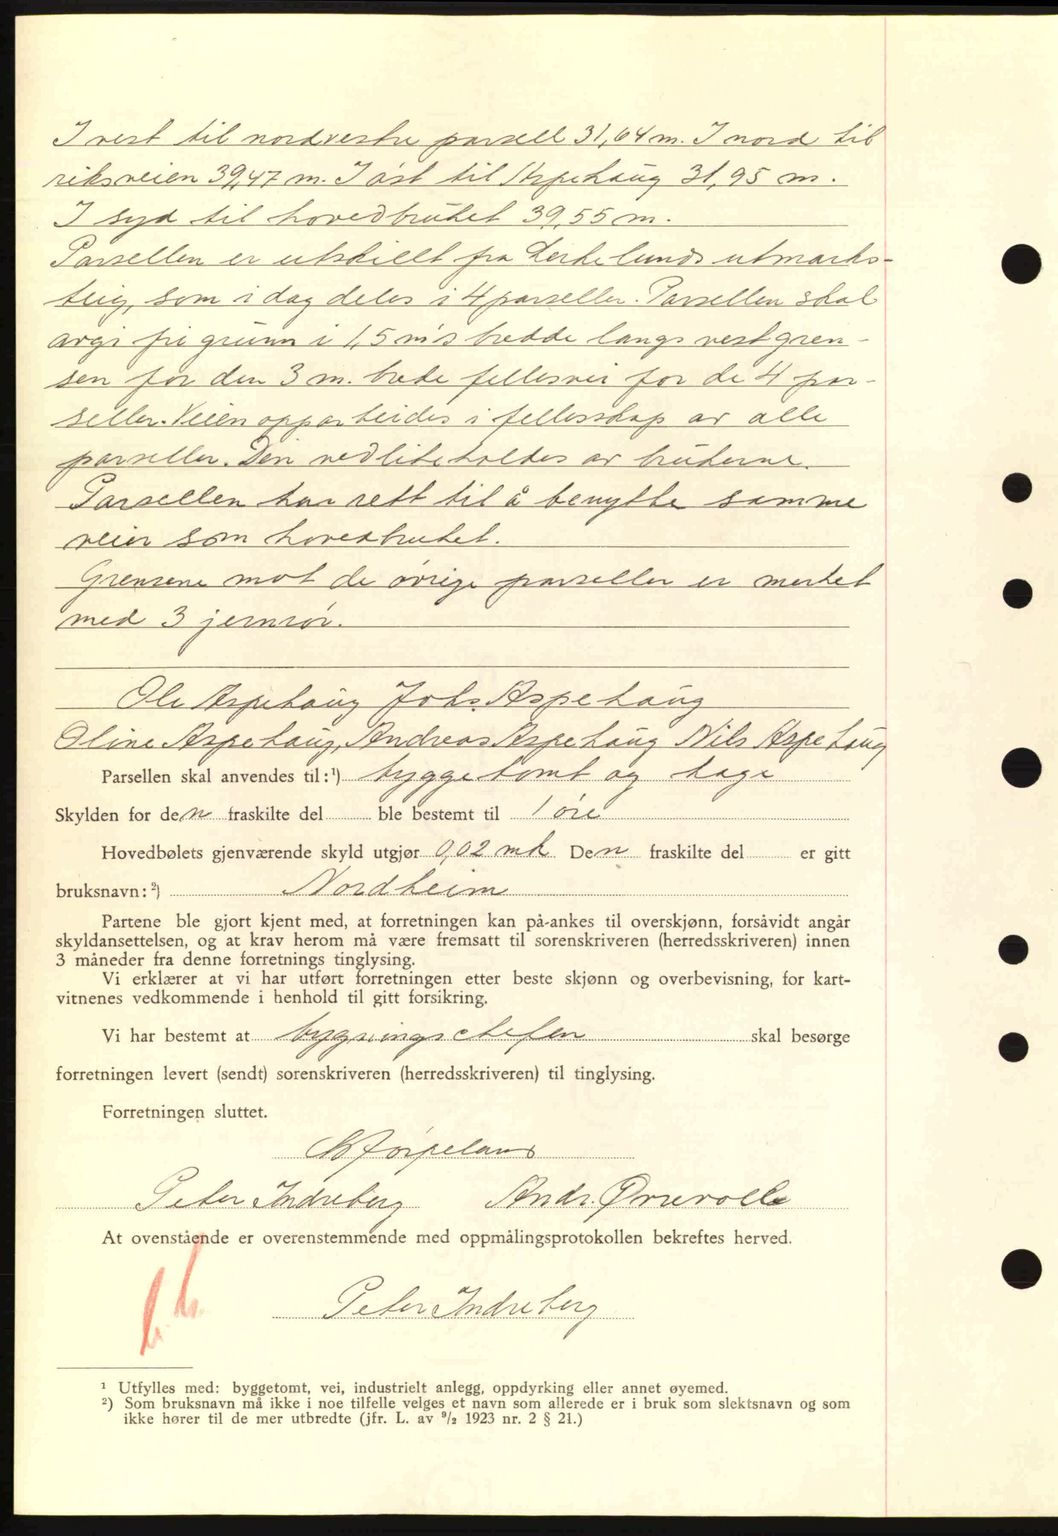 I vest til nordvestre parsell 31,64 m. I nord til
riksveien 39,47 m. I øst til Aspehaug 31,95 m.
I syd til hovedbruket 39,55 m.
Parsellen er utskillt fra Lerkelunds utmarks-
teig, som i dag deles i 4 parseller. Parsellen skal
avgi fri grunn i 1,5 m's bredde langs vestgren-
sen for den 3 m. brede fellesvei for de 4 par-
seller. Veien opparbeides i fellesskap av alle
parseller. Den vedlikeholdes av brukerne.
Parsellen har rett til å benytte samme
veier som hovedbruket.
Grensene mot de øvrige parseller er merket
med 3 jernrør.
Ole Aspehaug Johs. Aspehaug
Oline Aspehaug, Andreas Aspehaug Nils Aspehaug
Parsellen skal anvendes til:¹) byggetomt og hage
Skylden for den fraskilte del ble bestemt til 1 øre
Hovedbølets gjenværende skyld utgjør 0,02 mk Den fraskilte del er gitt
bruksnavn:²) Nordheim
Partene ble gjort kjent med, at forretningen kan på-ankes til overskjønn, forsåvidt angår
skyldansettelsen, og at krav herom må være fremsatt til sorenskriveren (herredsskriveren) innen
3 måneder fra denne forretnings tinglysing.
Vi erklærer at vi har utført forretningen etter beste skjønn og overbevisning, for kart-
vitnenes vedkommende i henhold til gitt forsikring.
Vi har bestemt at bygningschefen skal besørge
forretningen levert (sendt) sorenskriveren (herredsskriveren) til tinglysing.
Forretningen sluttet.
Peter Indreberg Andr. Ørsevolle
At ovenstående er overenstemmende med oppmålingsprotokollen bekreftes herved.
Peter Indreberg
¹ Utfylles med: byggetomt, vei, industrielt anlegg, oppdyrking eller annet øyemed.
²) Som bruksnavn må ikke i noe tilfelle velges et navn som allerede er i bruk som slektsnavn og som
ikke hører til de mer utbredte (jfr. L. av ⁹/₂ 1923 nr. 2 § 21.)